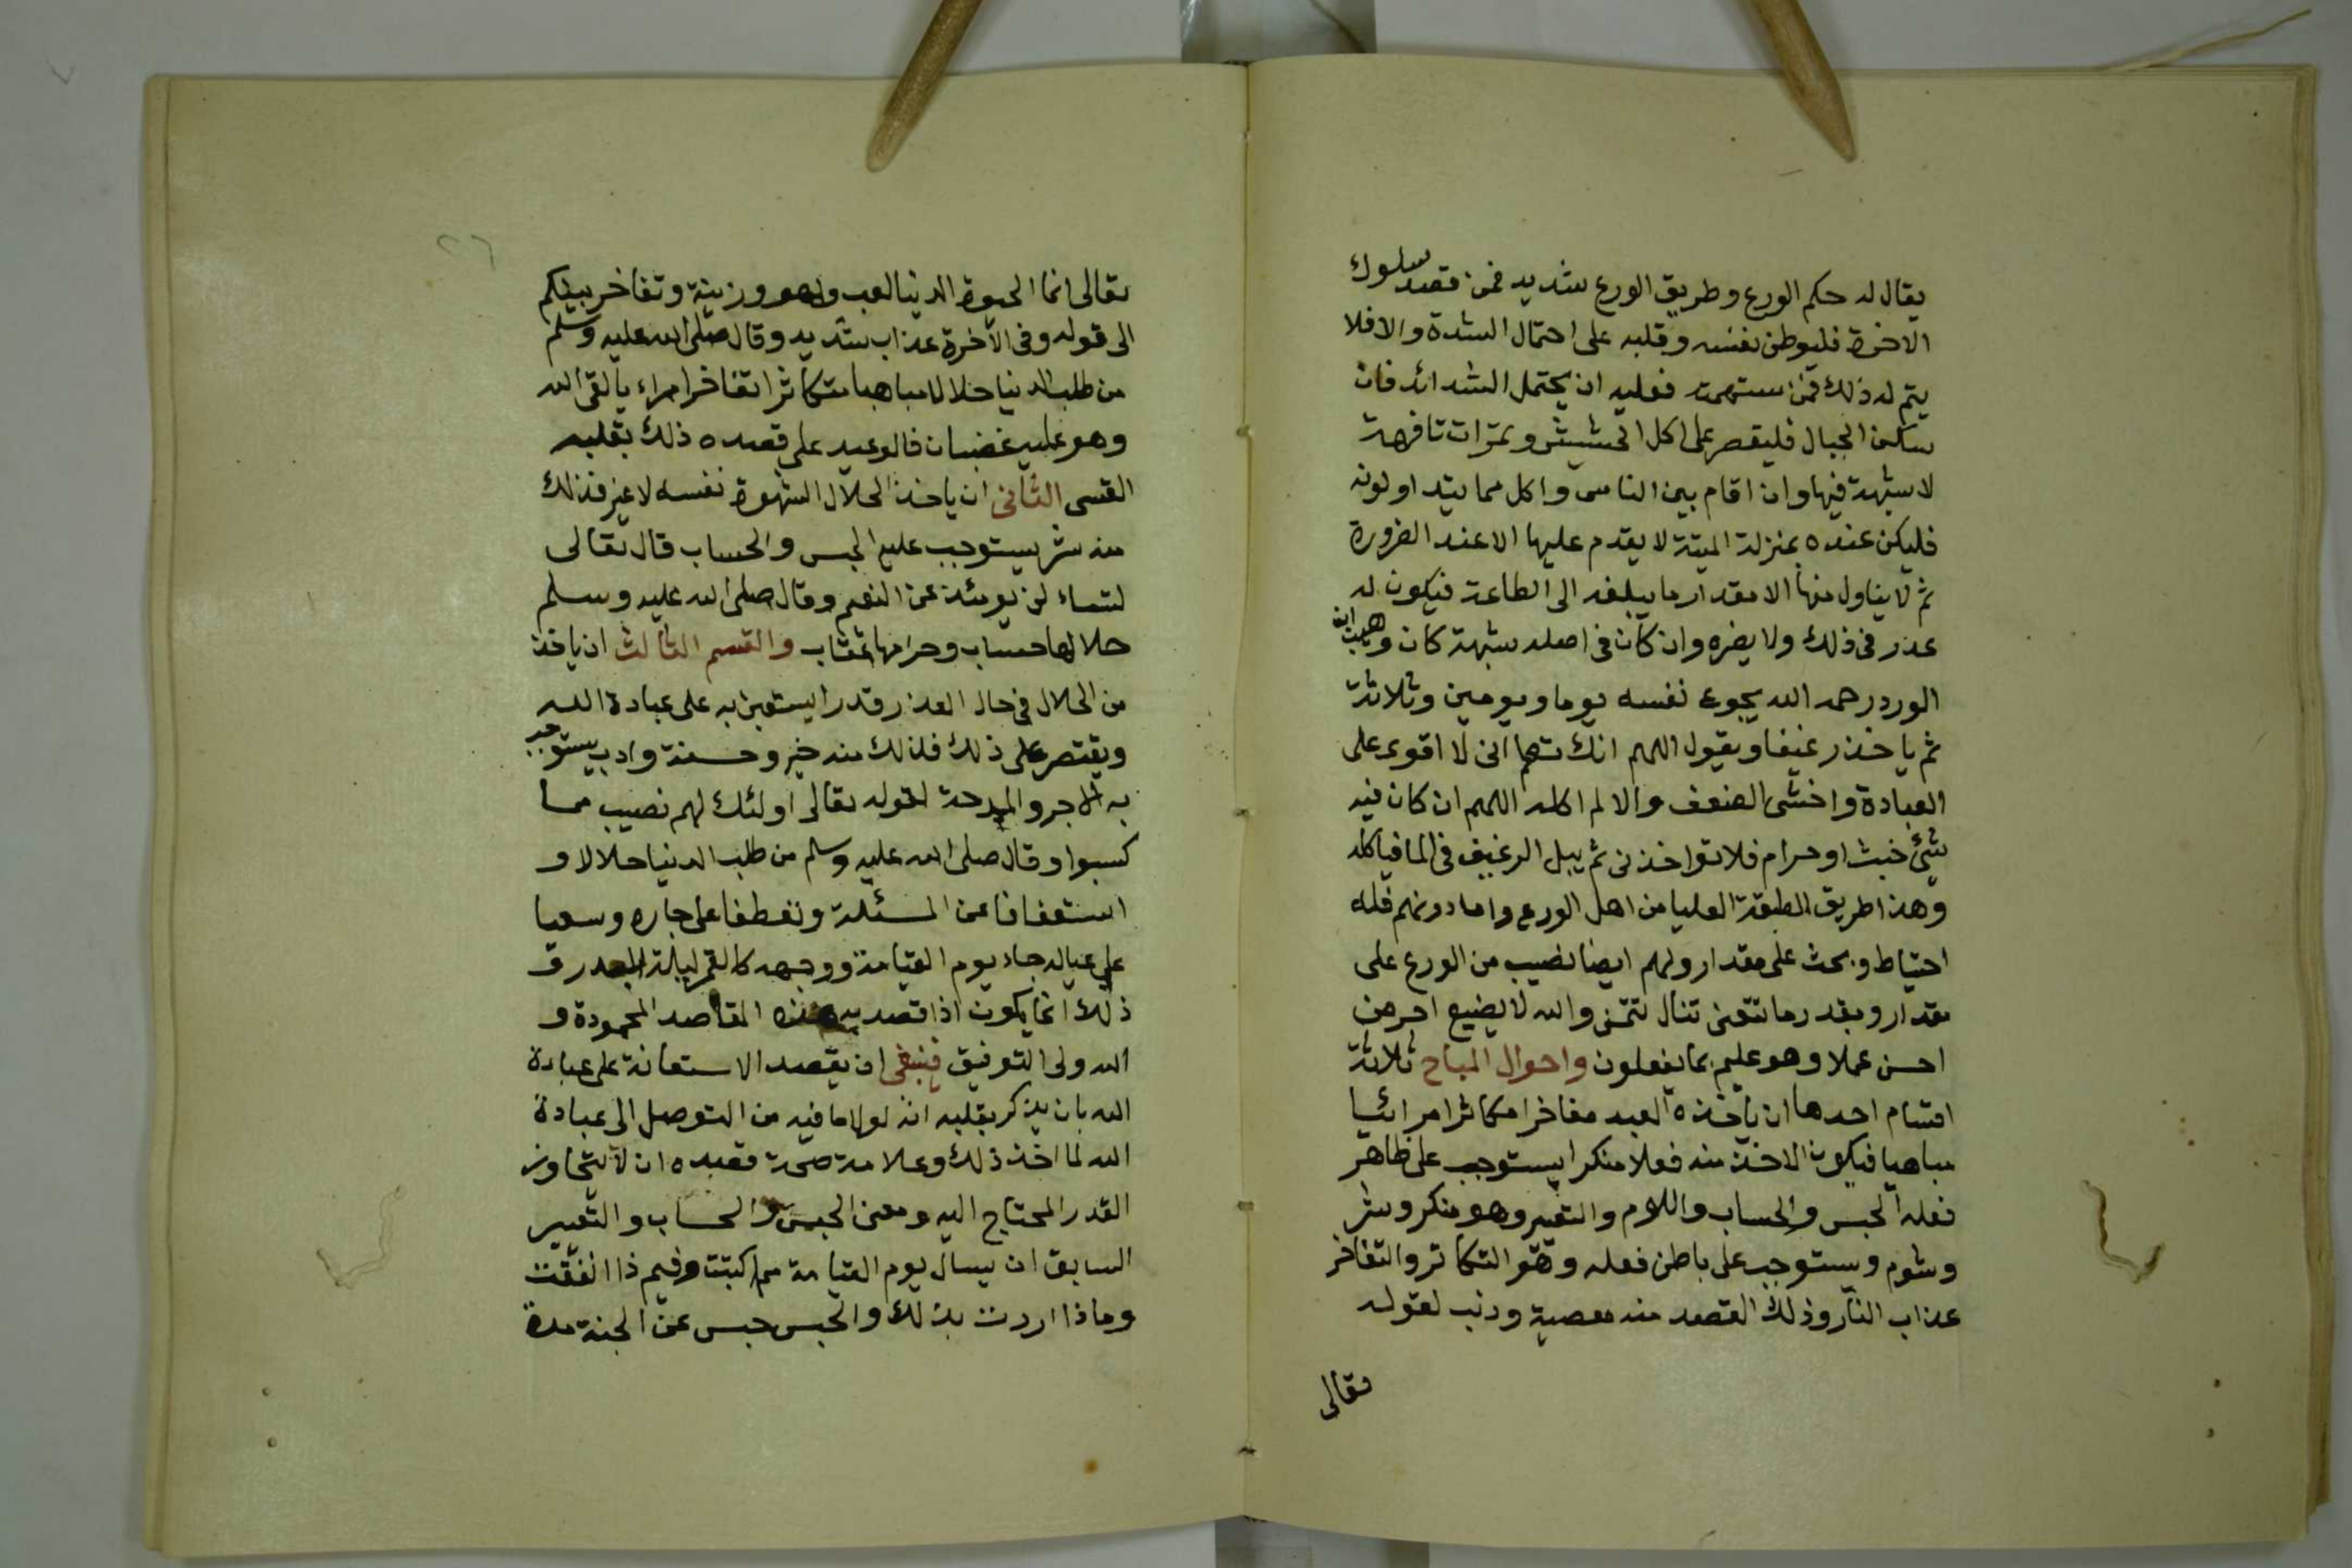 يقال له حكم الورع وطريق الورع شديد فمن قصد سلوك
الاخرة فليوطن نفسه وقلبه على احتمال الشدة والا فلا
يتم له ذلك فمن ستهمته فعليه ان يحتمل الشدائد فان
سكن الجبال فليقصر على اكل الحشيش وثمرات تافهة
لا شبهة فيها وان اقام بين الناس واكل مما يتداولونه
فليكن عنده بمنزلة الميتة لا يقدم عليها الا عند الضرورة
ثم لا يناول منها الا مقدار ما يبلغه الى الطاعة فيكون له
عذر فى ذلك ولا يضره وان كان فى اصله شبهة كان وهيب ابن
الورد رحمه الله يجوع نفسه يوما ويومين وثلاثة
ثم ياخذ رغيفا ويقول اللهم انك تعلم انى لا اقوى على
العبادة واخشى الضعف والا لم اكله اللهم ان كان فيه
شئ خبث او حرام فلا تواخذنى ثم يبل الرغيف فى الما فياكله
وهذا طريق الطبقة العليا من اهل الورع واما دونهم فله
احتياط وبحث على مقدار ولهم ايضا نصيب من الورع على
مقدار وبقدر ما تتعنى تنال تتمنى والله لا يضيع اجر من
احسن عملا وهو عليم بما يفعلون واحوال المباح ثلاثة
اقسام احدها ان ياخذه العبد مفاخرا مكاثرا مرائيا
مباهيا فيكون الاخذ منه فعلا منكرا يستوجب على ظاهر
فعله الحبس والحساب واللوم والتعيير وهو منكر وشر
وشوم ويستوجب على باطن فعله وهو التكاثر والتفاخر
عذاب النار وذلك القصد منه معصية وذنب لقوله
تعالى
تعالى انما الحيوة الدنيا لعب ولهو وزينة وتفاخر بينكم
الى قوله وفى الآخرة عذاب شديد وقال صلى الله عليه وسلم
من طلب الدنيا حلالا مباهيا متكاثرا تفاخرا مراء يا لقى الله
وهو عليه غضبان فالوعيد على قصده ذلك بقلبه
القسى الثانى ان ياخذ الحلال الشهوة نفسه لا غير فذلك
منه شر يستوجب عليه الحبس والحساب قال تعالى
لتسا لن يومئذ عن النعيم وقال صلى الله عليه وسلم
حلالها حساب وحرامها عقاب والقسم الثالث ان ياخذ
من الحلال فى حال العذر قدرا يستعين به على عبادة الله
ويقتصر على ذلك فذلك منه خير وحسنة وادب يستوجب
به الاجر والمدحة لقوله تعالى اولئك لهم نصيب مما
كسبوا وقال صلى الله عليه وسلم من طلب الدنيا حلالا و
استعفافا عن المسئلة وتعطفا على جاره وسعيا
على عياله جاء يوم القيامة ووجهه كالقمر ليلة البدر ف
ذلك انما يكون اذا قصد به هذه المقاصد المحمودة و
الله ولى التوفيق فينبغى ان يقصد الاستعانة على عبادة
الله بان يذكر بقلبه انه لولا ما فيه من التوصل الى عبادة
الله لما اخذ ذلك وعلامة صحة قصده ان لا يتجاوز
القدر المحتاج اليه ومعنى الحبس والحساب والتعيير
السابق ان يسال يوم القيامة مم اكتبت وفيم ذا انفقت
وماذا اردت بذلك والحبس حبس عن الجنة مدة